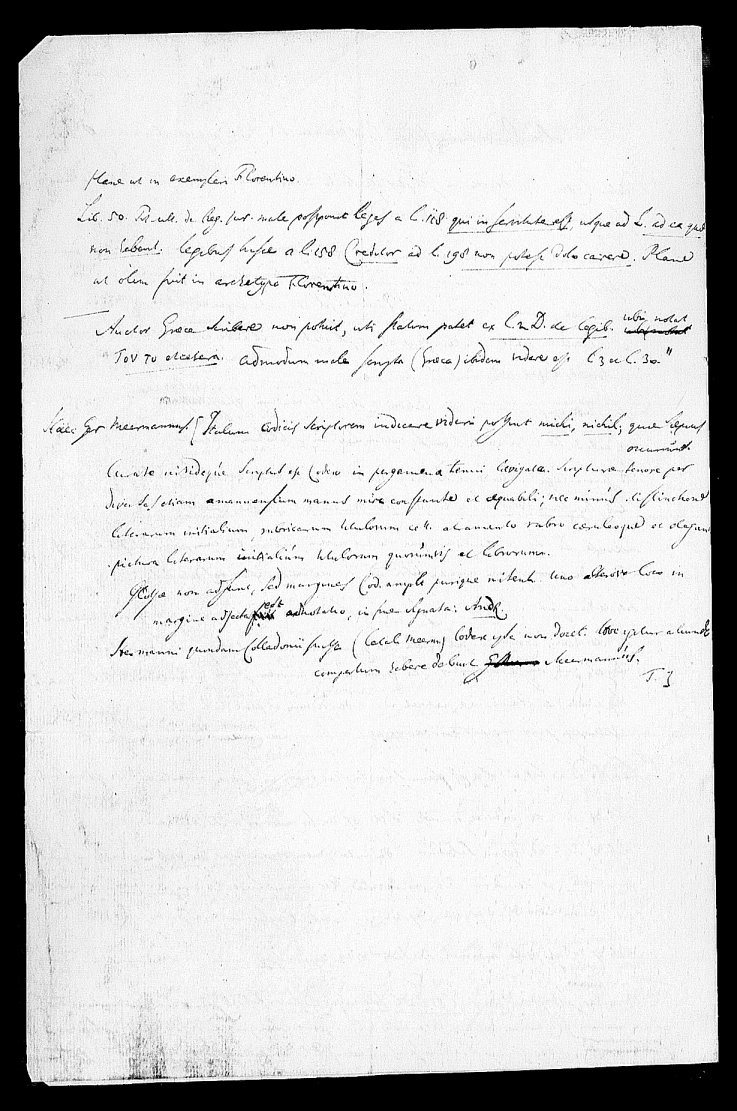 plane ut in exemplari Florentino.
Lib. 50. Tit. ult. de Reg. Jur. male posponit leges a l. 118 qui in servitute est, usque ad L. ad ea quae
non habent. legibus hisce a l. 158 Creditor ad l. 198 non potest dolo carere. Plane
ut olim fuit in archetypo Florentino.
Auctor Graeca scribere non potuit, uti statim patet ex l. 2 D. de legib. ubi notat
τον το etcetera. admodum male scripta (Graeca) ibidem videre est l. 3 et l. 30"
Haec Ger Meermannus [Italum codicis scriptorem indicare videri possunt michi, nichil, quae saepius
occurrunt.
Curate nitideque scriptus est Codex in pergamena tenui levigata. scripturae tenore per
diversas etiam amanuensium manus mire constante et aequabili; nec minus distinctione
literarum initialium, rubricarum titulorum cett. atramento rubro caeruleoque et elegans
pictura literarum initialium titulorum quorumvis et librorum.
Glossae non adsunt, sed margines Cod. ampli purique nitent. uno alterove loco in
margine adjecta est adnotatio, in fine signata: Andr.
Ise manni quondam Colladonii fuisse (Catal. Meerm) Codex ipse non docet. hoc igitur aliunde
compertum habere debuit Meermannus.
T. ]